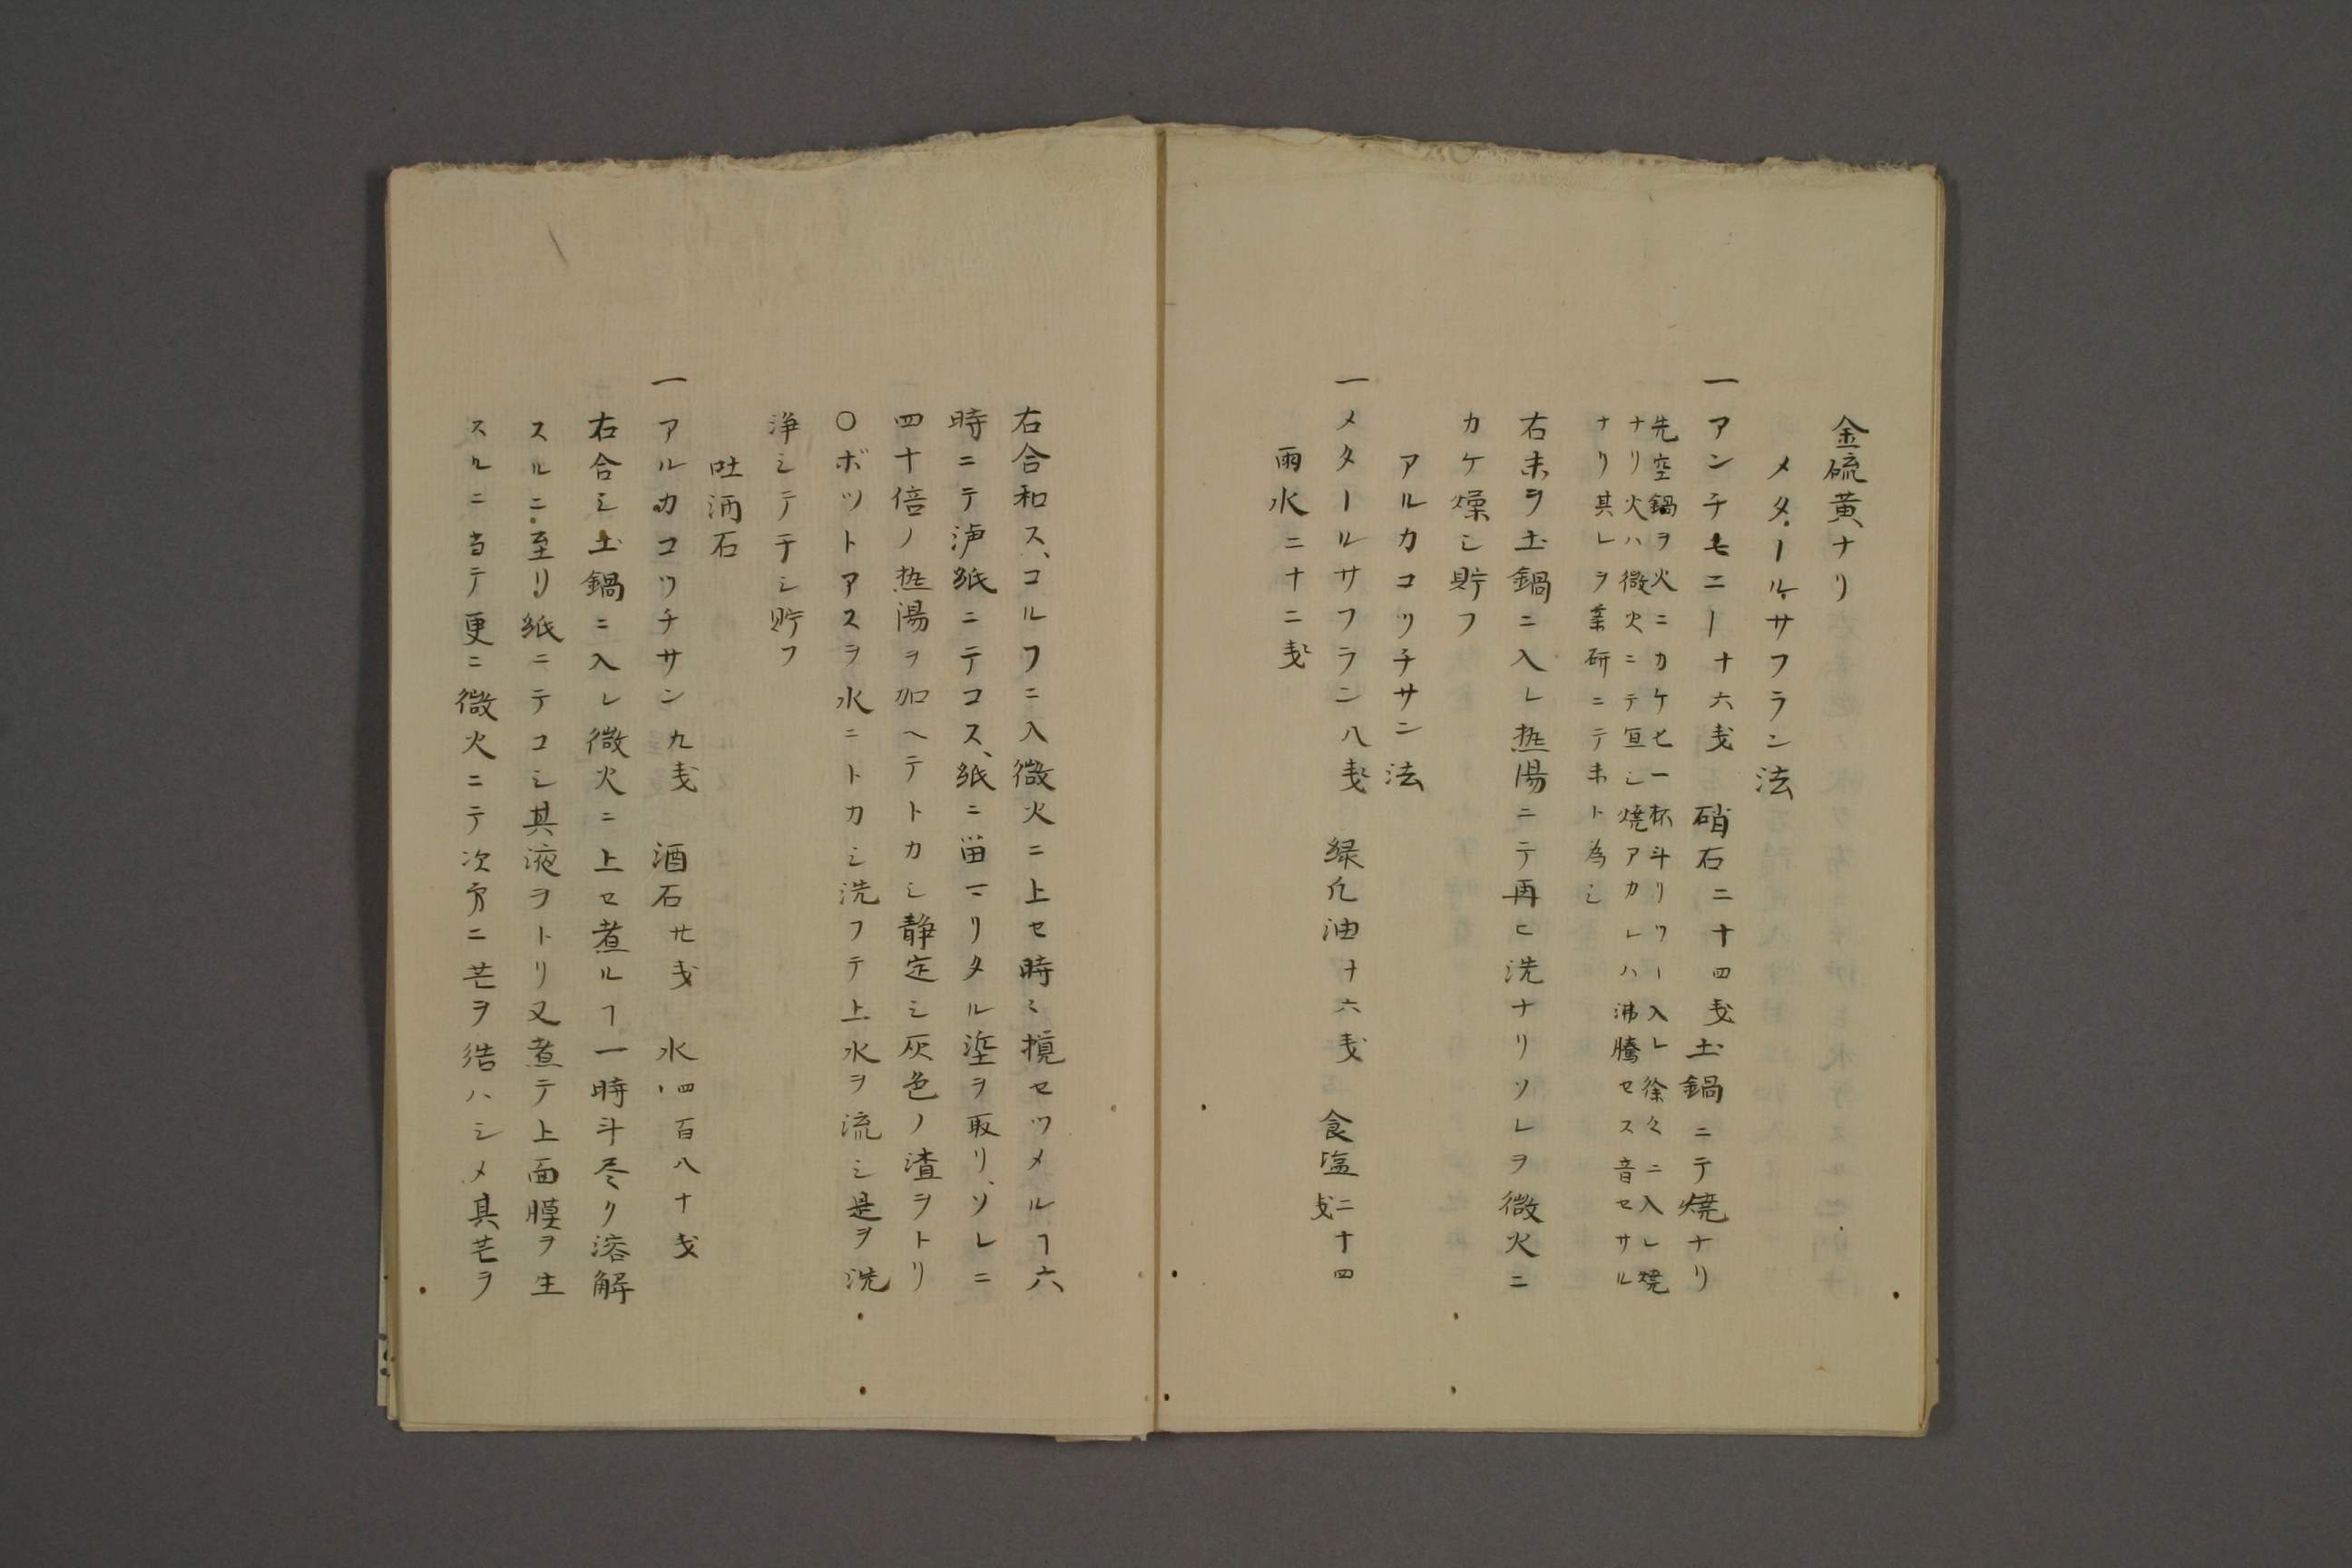 金硫黄ナリ
メタールサフラン法
一アンチモニー十六戔 硝石二十四戔土鍋ニテ焼ナリ
先空鍋ヲ火ニカケヒ一杯斗リツー入レ徐々ニ入レ焼
ナリ火ハ微火ニテ宜シ焼アカレハ沸騰セス音セサル
ナリ其レヲ薬研ニテ末ト為シ
右末ヲ土鍋ニ入レ热湯ニテ再ヒ洗ナリソレヲ微火ニ
カケ燥シ貯フ
アルカコツチサン法
一メタールサフラン八戔 緑凡油十六戔 食塩二十四戔
雨水二十二戔
右合和ス、コルフニ入微火ニ上セ時〻攪セツメルヿ六
時ニテ泸紙ニテコス、紙ニ畄マリタル塗ヲ取リ、ソレニ
四十倍ノ热湯ヲ加ヘテトカシ静定シ灰色ノ渣ヲトリ
〇ボツトアスヲ水ニトカシ洗フテ上水ヲ流シ是ヲ洗
浄シテテシ貯フ
吐酒石
一アルカコツチサン九戔 酒石廿戔 水四百八十戔
右合シ土鍋ニ入レ微火ニ上セ煮ルヿ一時斗尽リ溶解
スルニ至リ紙ニテコシ其液ヲトリ又煮テ上面膜ヲ生
スルニ当テ更ニ微火ニテ次第ニ芒ヲ結ハシメ其芒ヲ